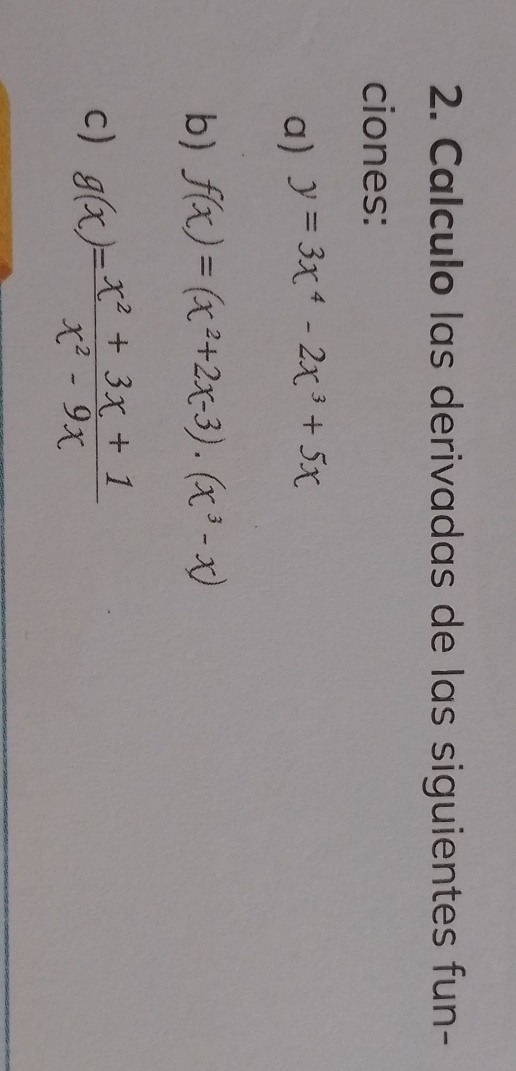 2. Calculo las derivadas de las siguientes fun-
ciones:
a) y = 3x⁴ - 2x³ + 5x
b) f(x) = (x²+2x-3) . (x³ - x)
c) g(x)= x² + 3x + 1
x² - 9x